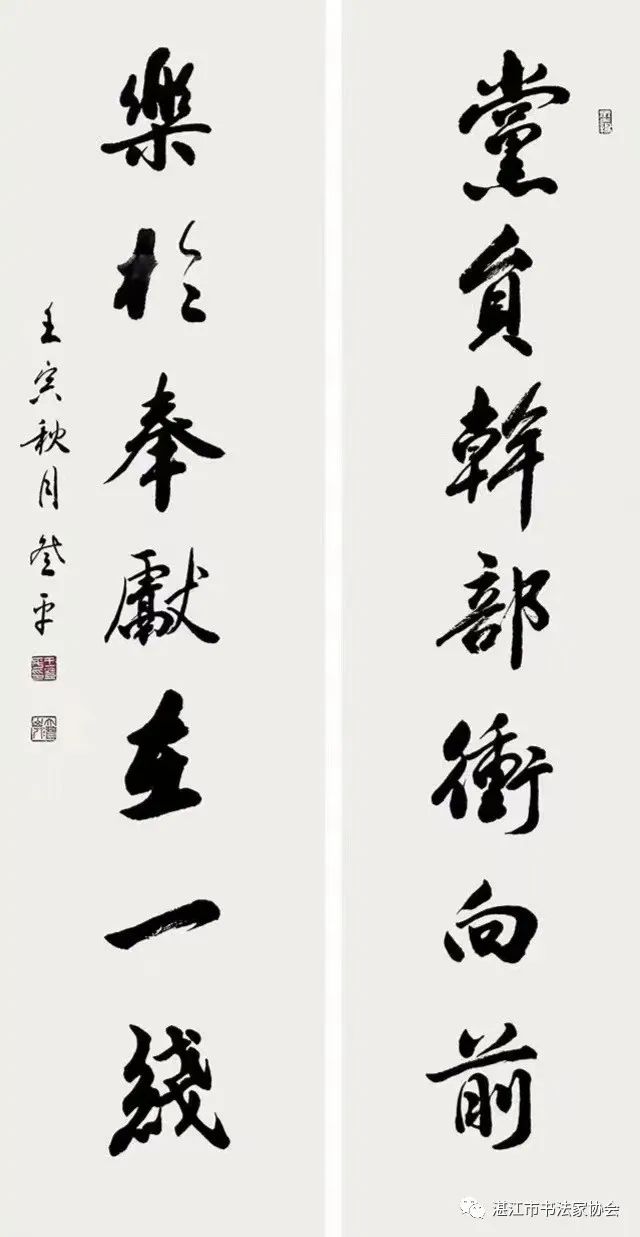 黨員幹部衝向前
樂於奉獻在一綫
壬寅秋月
湛江市书法家协会